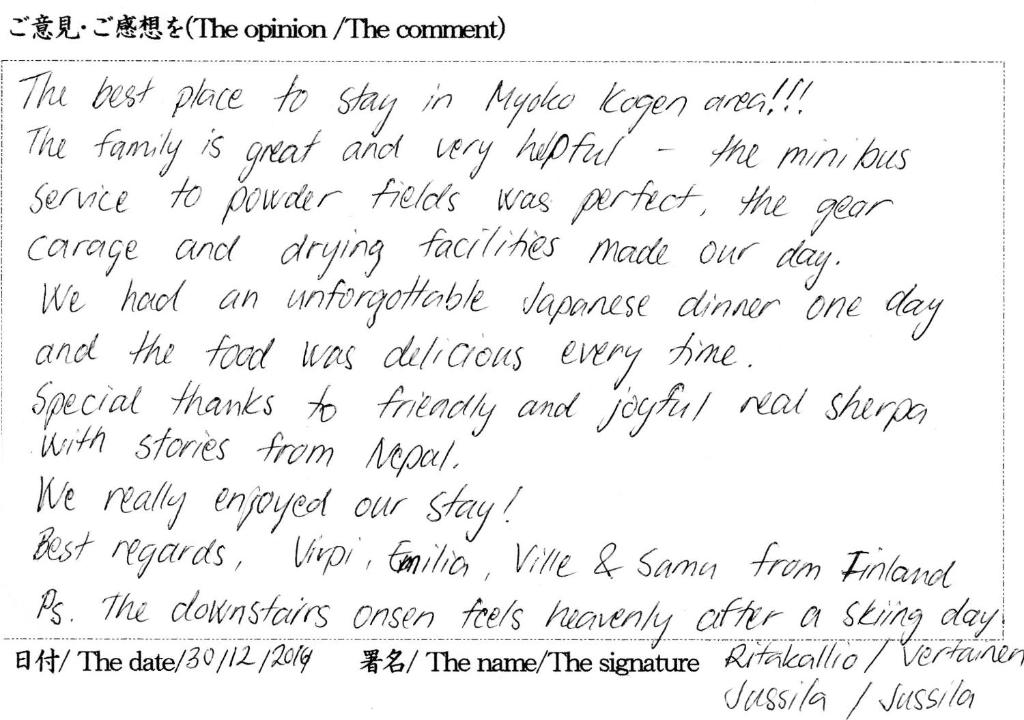 ご意見・ご感想を(The opinion /The comment)
The best place to stay in Myoko Kogen area!!!
The family is great and very helpful - the minibus
service to powder fields was perfect, the gear
carage and drying facilities made our day.
We had an unforgottable Japanese dinner one day
and the food was delicious every time.
Special thanks to friendly and joyful real sherpa
with stories from Nepal.
We really enjoyed our stay!
Best regards, Virpi, Emilia, Ville & Samu from Finland
Ps. The downstairs onsen feels heavenly after a skiing day.
日付/ The date/30/12/2019 署名/ The name/The signature Ritakallio / Vertainen
Jussila / Jussila